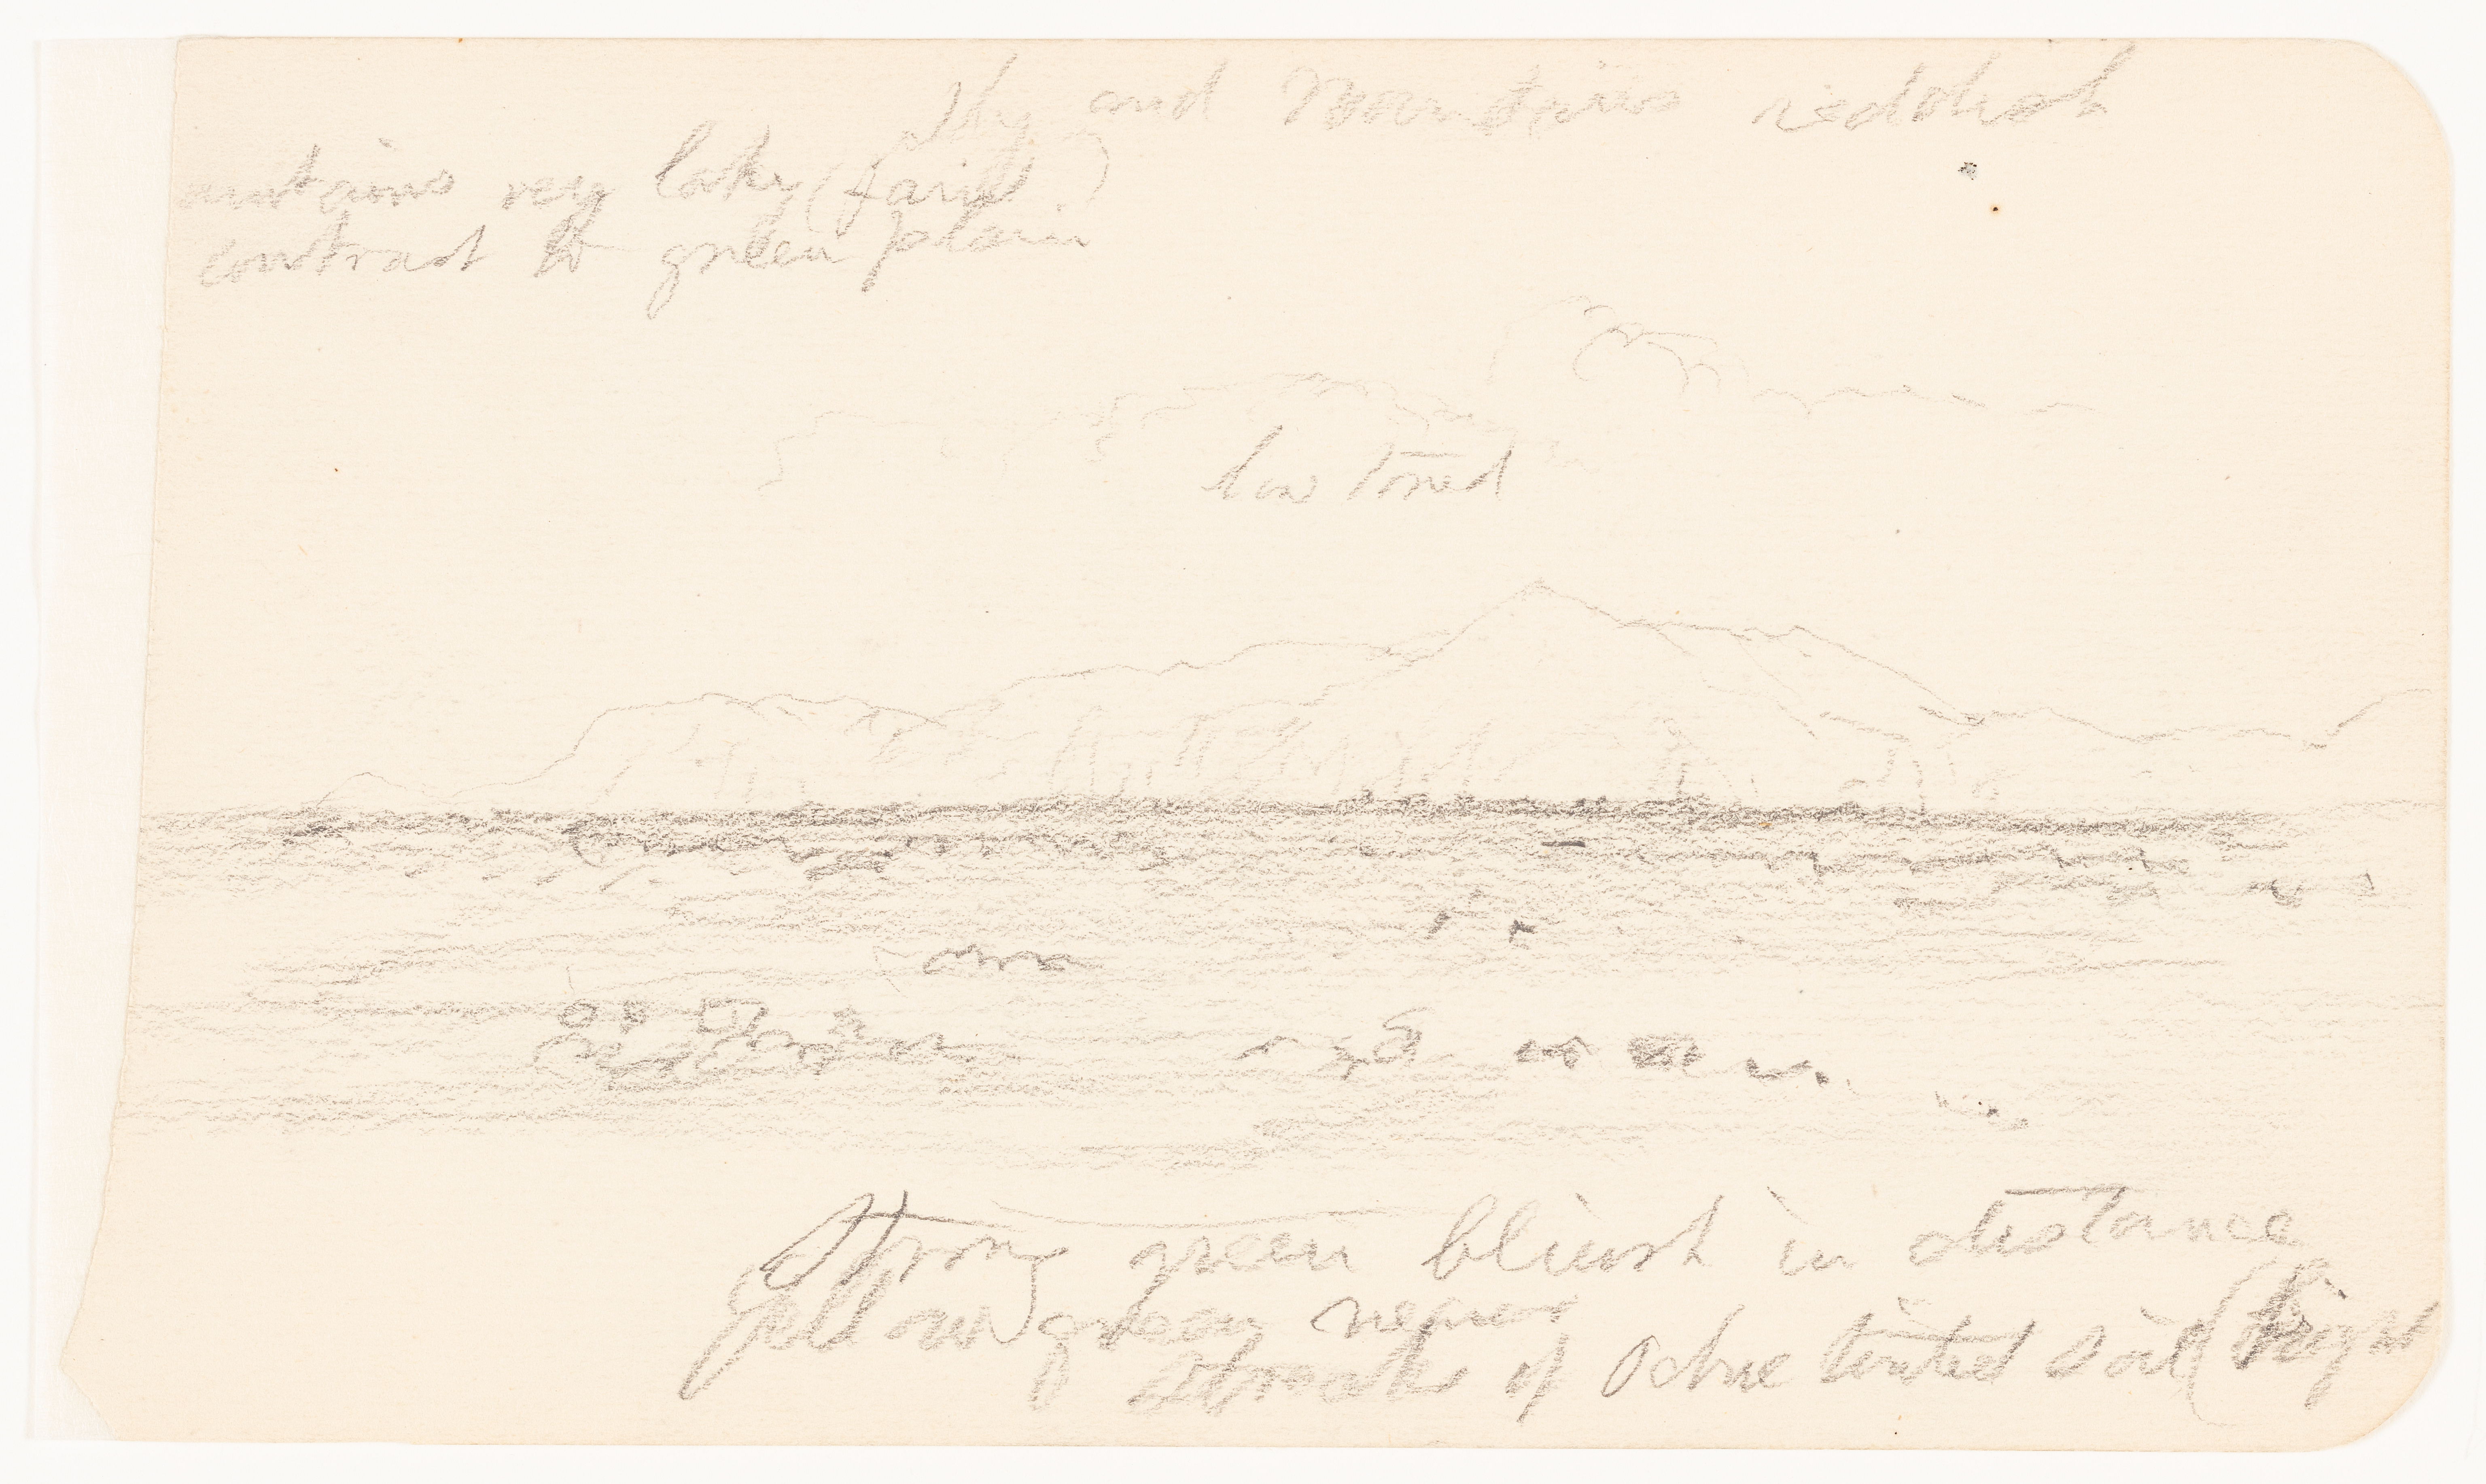 Sky and Mountains reddish
mountains very (faint)
contrast to green plain
low toned
Strong green bluish in distance
yellow green nearer
Streaks of Ochre tinted soil (bright